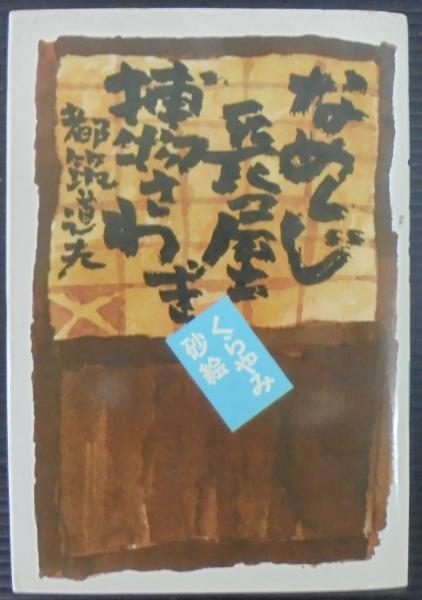 なめくじ
長屋
捕物さわぎ
都筑道夫
くらやみ
砂絵